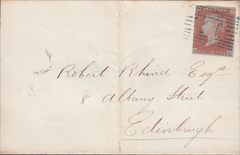 Robert Rhind Esqre
8 Albany Street
Edinburgh